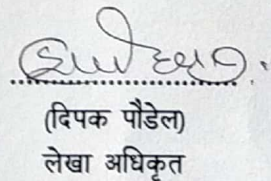 (दिपक पौडेल)
लेखा अधिकृत